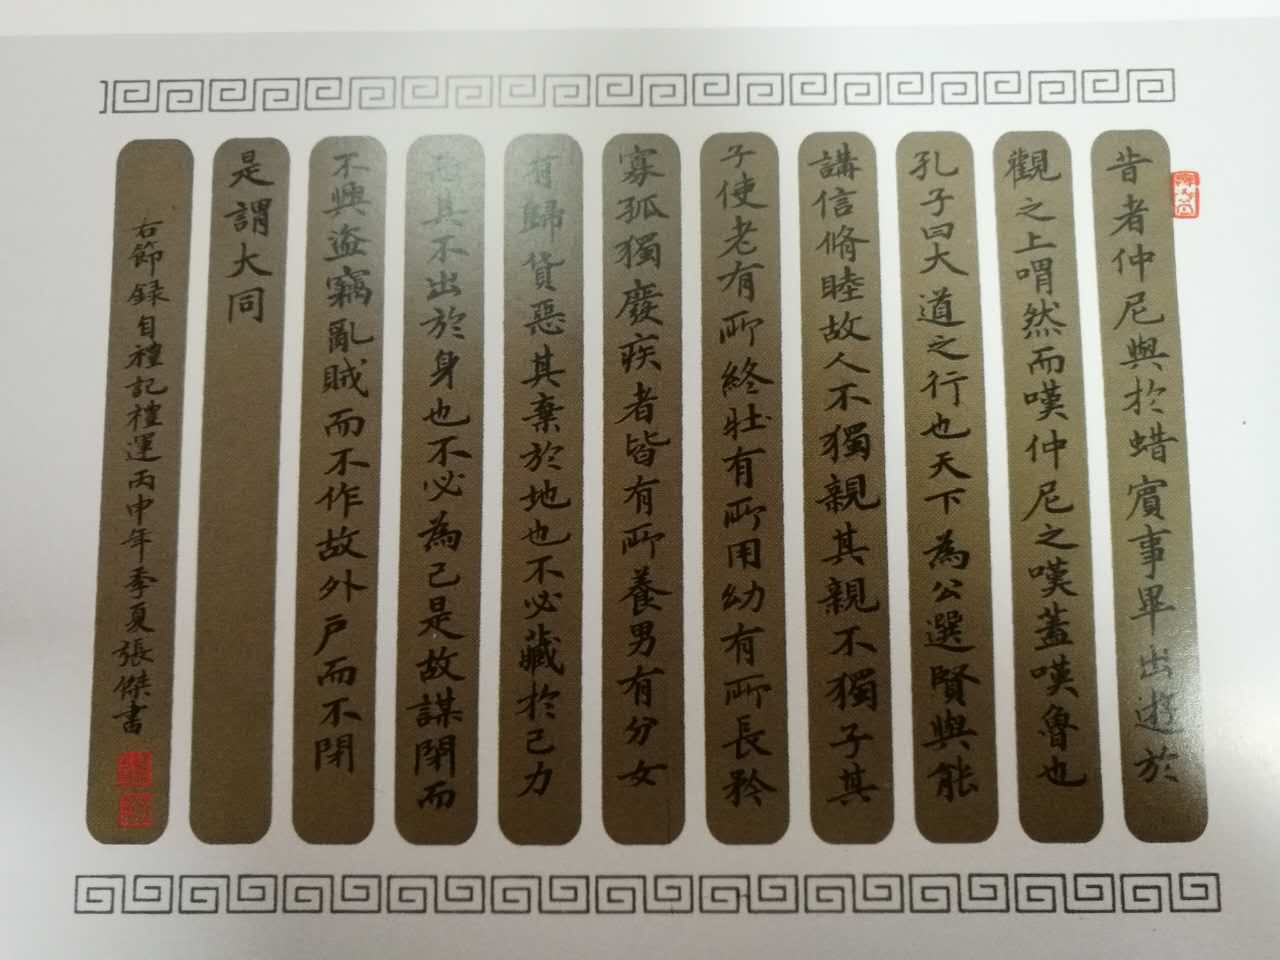 昔者仲尼與於蜡賓事畢出遊於
觀之上喟然而嘆仲尼之嘆蓋嘆魯也
孔子曰大道之行也天下為公選賢與能
講信脩睦故人不獨親其親不獨子其
子使老有所終壯有所用幼有所長矜
寡孤獨廢疾者皆有所養男有分女
有歸貨惡其棄於地也不必藏於己力
惡其不出於身也不必為己是故謀閉而
不興盜竊亂賊而不作故外戶而不閉
是謂大同
右節錄自禮記禮運丙申年季夏張傑書